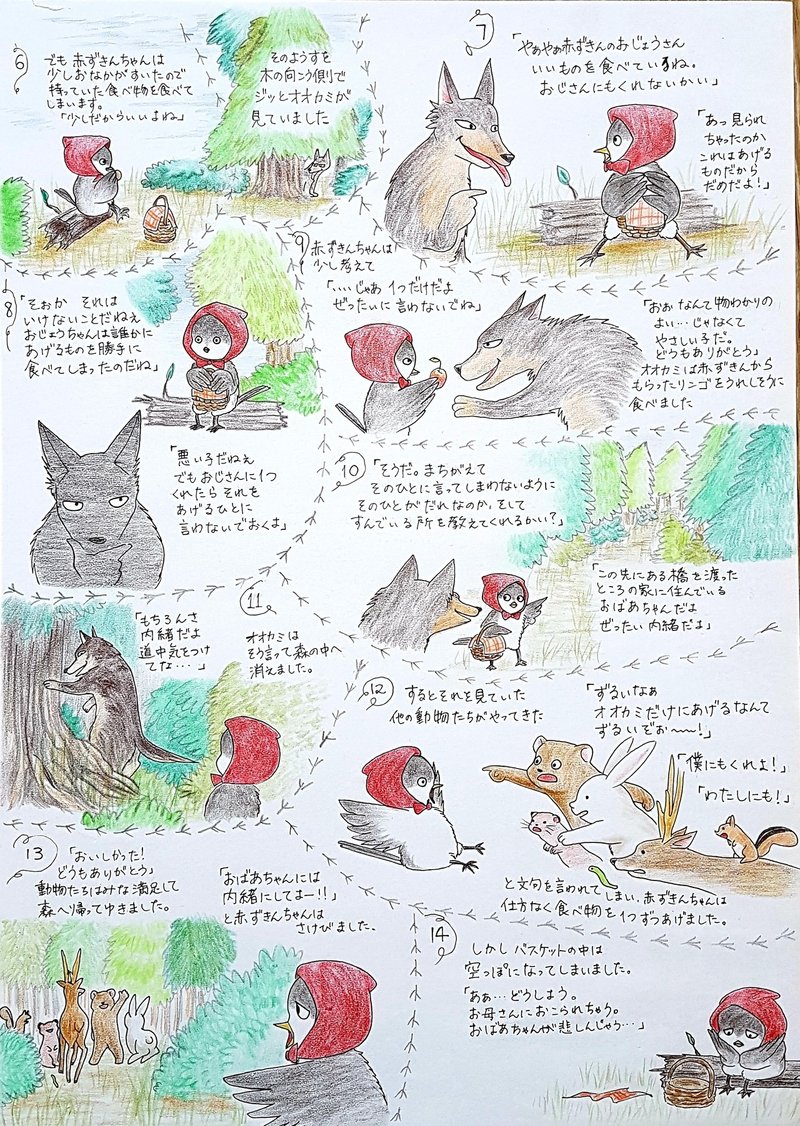 6
でも 赤ずきんちゃんは
少しおなかがすいたので
持っていた食べ物を食べて
しまいます。
「少しだからいいよね」
そのようすを
木の向こう側で
ジッとオオカミが
見ていました
7
「やぁやぁ赤ずきんのおじょうさん
いいものを食べているね。
おじさんにもくれないかい」
「あっ 見られ
ちゃったのか
これはあげる
ものだから
だめだよ！」
8
「そぉか それは
いけないことだねぇ
おじょうちゃんは誰かに
あげるものを勝手に
食べてしまったのだね」
「悪い子だねぇ
でもおじさんに1つ
くれたら それを
あげるひとに
言わないでおくよ」
9
赤ずきんちゃんは
少し考えて
「‥‥じゃあ 1つだけだよ
ぜったいに言わないでね」
「おぉ なんて物わかりの
よい…じゃなくて
やさしい子だ。
どうもありがとう」
オオカミは赤ずきんから
もらったリンゴをうれしそうに
食べました
10
「そうだ。まちがえて
そのひとに言ってしまわないように
そのひとがだれなのか、そして
すんでいる所を教えてくれるかい？」
「この先にある橋を渡った
ところの家に住んでいる
おばあちゃんだよ
ぜったい内緒だよ」
11
「もちろんさ
内緒だよ
道中気をつけ
てな…」
オオカミは
そう言って森の中へ
消えました。
12
するとそれを見ていた
他の動物たちがやってきた
「ずるいなぁ
オオカミだけにあげるなんて
ずるいぞぉ〜！」
「僕にもくれよ！」
「わたしにも！」
と文句を言われてしまい、赤ずきんちゃんは
仕方なく食べ物を1つずつあげました。
13
「おいしかった！
どうもありがとう」
動物たちはみな満足して
森へ帰ってゆきました。
「おばあちゃんには
内緒にしてよー！！」
と赤ずきんちゃんは
さけびました。
14
しかし バスケットの中は
空っぽになってしまいました。
「あぁ…どうしよう。
お母さんにおこられちゃう。
おばあちゃんが悲しんじゃう…」